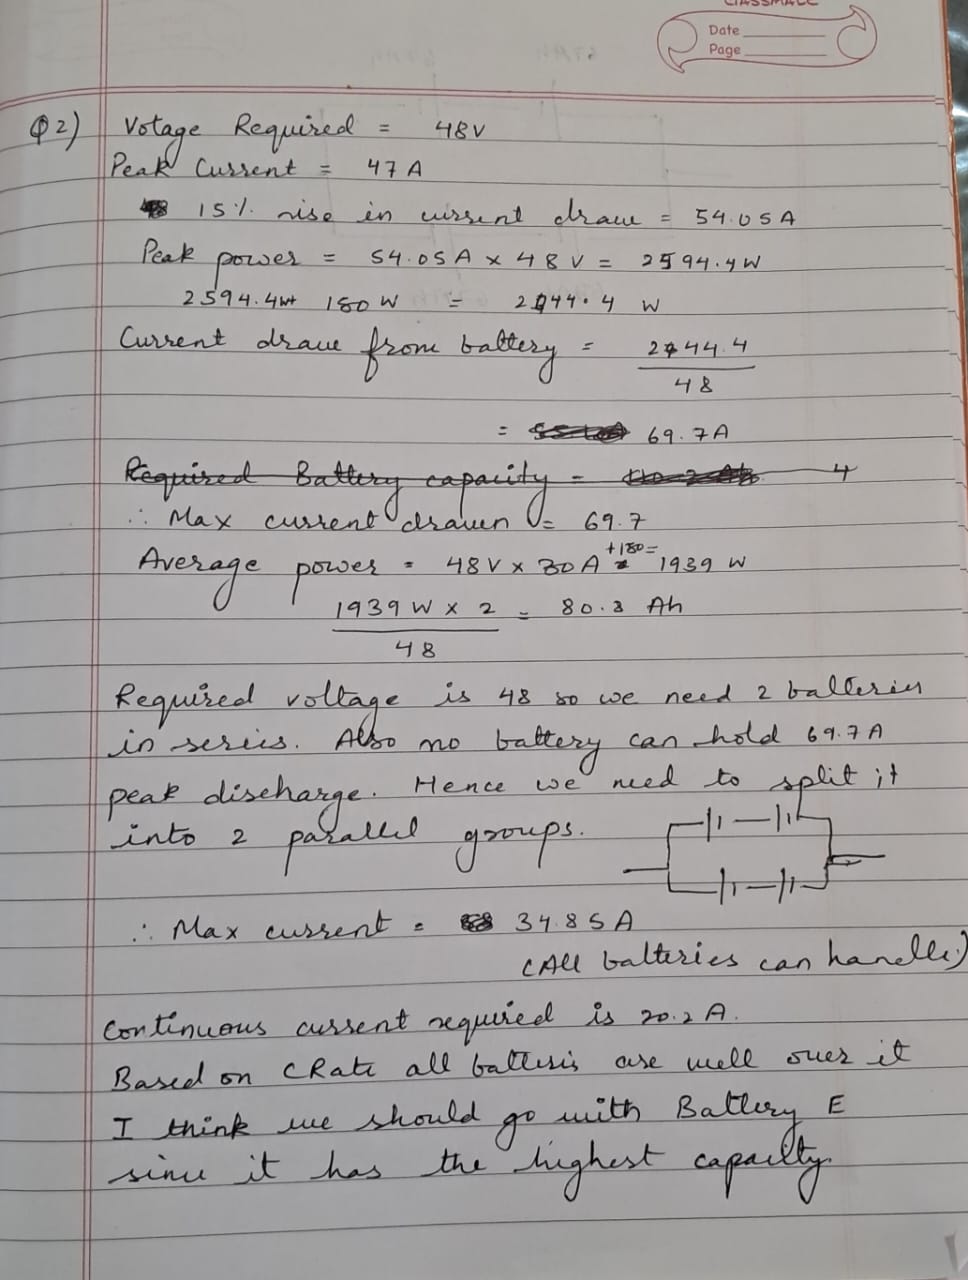 CLASSMATE
Date
Page
Q2) Votage Required = 48V
Peak Current = 47 A
15% rise in current draw = 54.05A
Peak power = 54.05A × 48 V = 2594.4W
2594.4W+ 180 W = 2744.4 W
Current draw from battery = 2744.4
48
= 69.7A
Required Battery capacity =
∴ Max current drawn = 69.7
Average power = 48V × 30 A +180= 1939 W
1939 W × 2 = 80.8 Ah
48
Required voltage is 48 so we need 2 batteries
in series. Also no battery can hold 69.7A
peak discharge. Hence we need to split it
into 2 parallel groups.
∴ Max current = 34.85A
(All batteries can handle)
Continuous current required is 20.2 A.
Based on CRate all batteris are well over it
I think we should go with Battery E
since it has the highest capacity